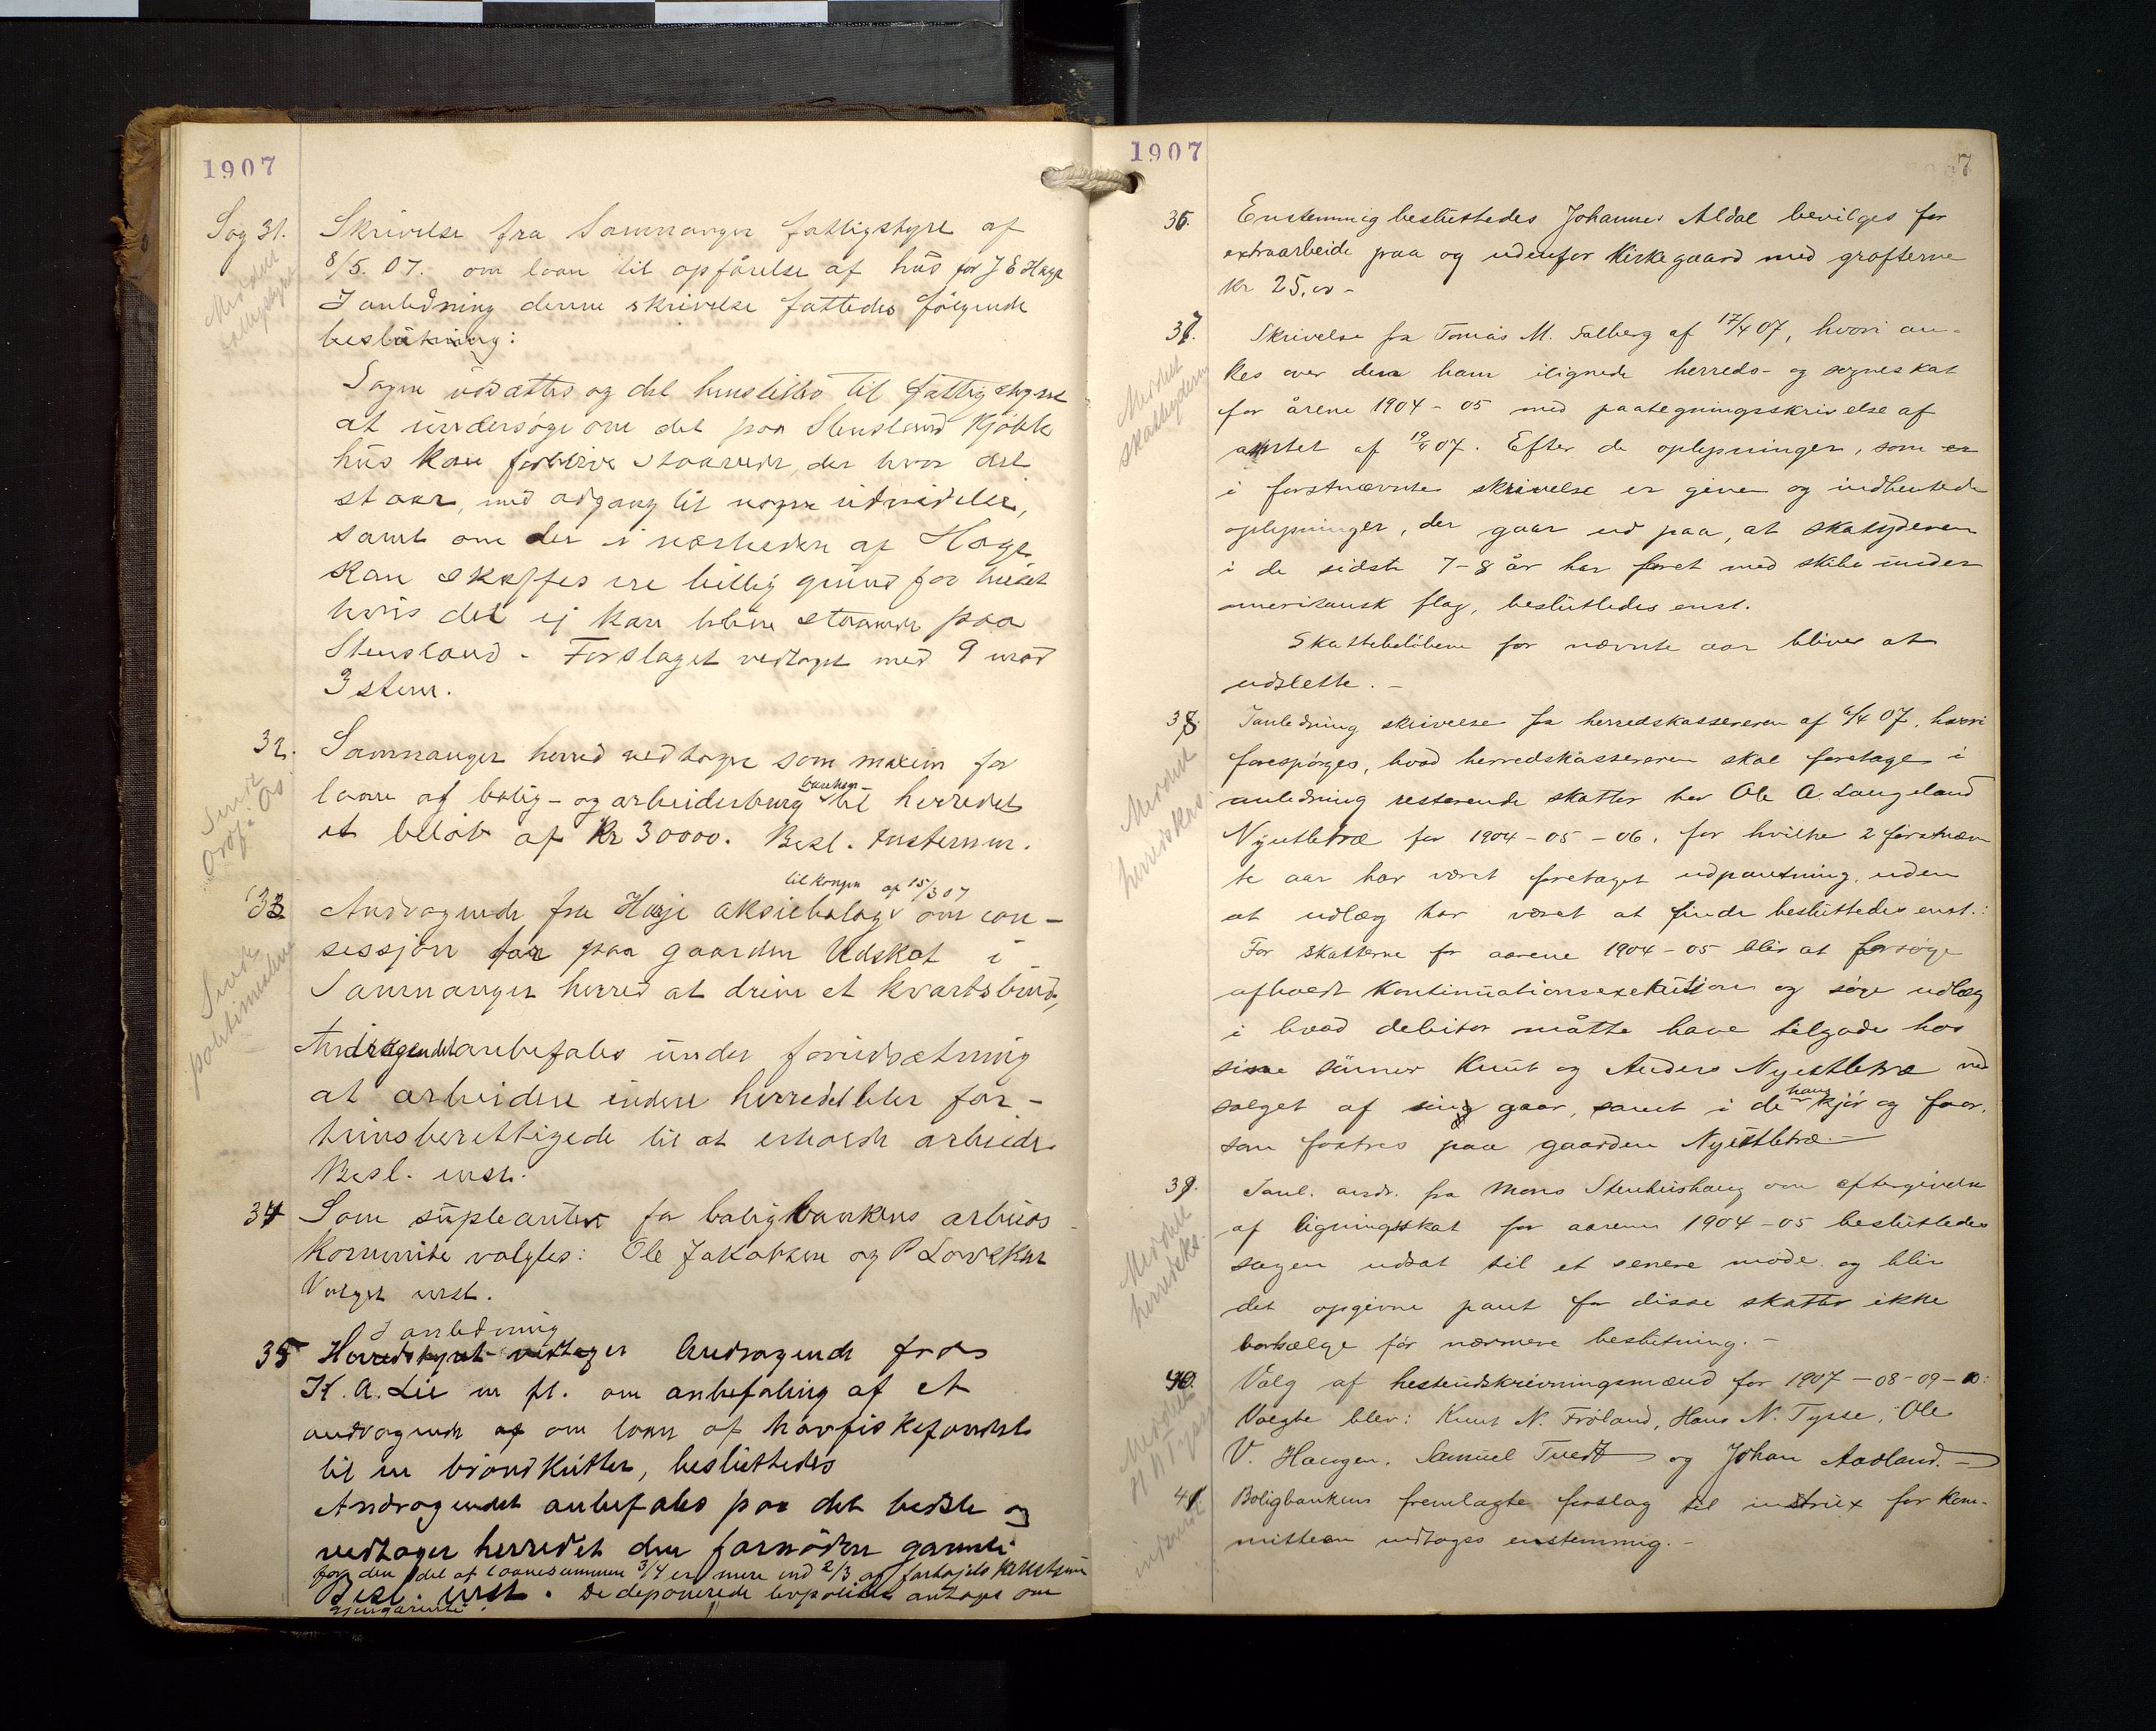 1907
Sag 31. Skrivelse fra Samnanger fattigstyre af
8/5. 07. om laan til opførelse af hus for J E Hage
I anledning denne skrivelse fattedes følgende
beslutning:
Sagen udsættes og det henstilles til fattigstyret
at undersøge om det paa Stensland kjøbte
hus kan forblive staaende, der hvor det
staar, med adgang til nogen udmideler,
samt om der i nærheden af Hage
kan skaffes en billig grund for huset
hvis det ej kan blive staaende paa
Stensland. Forslaget vedtaget med 9 mod
3 stem.
Meddelt
fattigstyret
32. Samnanger herred vedtager som maxim for
laan af bolig- og arbeiderbrug banken til herredet
et beløb af Kr 30000. Besl. enstemm.
Sendt
Ordf. Os
33 Andragende fra Høje aksiebolag til Kongen af 15/3 07 om con-
sessjon for paa gaarden Udskot i
Samnanger herred at drive et kvartsbrud,
Andragendet anbefales under forudsætning
at arbeidere inden herredet bler for-
trinsberettigede til at erholde arbeide.
Besl. enst.
Sendt
politimesteren
34 Som supleanter for boligbankens arbeids
komite valgtes: Ole Jakobsen og P Lønskar
Valget enst.
I anledning
35 Herredstyret vedtager Andragende fra
K. A. Lie m fl. om anbefaling af et
andragende af om laan af havfiskefondet
til en brøndkutter, besluttedes
Andragendet anbefales paa det bedste og
vedtager herredet den fornødne garanti
for den del af laanesummen 3/4 er mere end 2/3 af fartøjets
Besl. enst. De deponerede livpoliser antages som
1907
7
36. Enstemmig besluttedes Johannes Aldal bevilges for
extraarbeide paa og udenfor Kirkegaard med grøfterne
Kr 25,00 -
37. Skrivelse fra Tomas M. Solberg af 17/4 07, hvori an-
kes over den ham ilignede herreds- og sogneskat
for årene 1904 - 05 med paategningsskrivelse af
amtet af 19/4 07. Efter de oplysninger, som er
i førstnævnte skrivelse er given og indhentede
oplysninger, der gaar ud paa, at skatyderen
i de sidste 7-8 år har faret med skibe under
amerikansk flag, besluttedes enst.
Skattebeløbene for nævnte aar bliver at
udslette. -
Meddelt
skatteyderen
38. I anledning skrivelse fra herredskassereren af 6/4 07, hvori
forespørges, hvad herredskassereren skal foretage i
anledning resterende skatter hos Ole A. Langeland
Nyutletræ for 1904 - 05 - 06. for hvilke 2 førstnævn
te aar har været foretaget udpantning, uden
at udlæg har været at finde besluttedes enst.:
For skatterne for aarene 1904 - 05 blir at forsøge
afholdt kontinuationsexekution og søge udlæg
i hvad debitor måtte have tilgode hos
sine sønner Knut og Anders Nyutletræ ved
salget af sing gaar, samt i de hans kjør og faar,
som fostres paa gaarden Nyutletræ. -
Meddelt
herredskas.
39. I anl. andr. fra Mons Stenhushaug om eftergivelse
af ligningsskat for aarene 1904 - 05 besluttedes
sagen udsat til et senere møde og blir
det opgivne pant for disse skatter ikke
bortsælge før nærmere beslutning. -
Meddelt
herredsks.
40. Valg af hesteudskrivningsmænd for 1907 - 08 - 09 - 10:
Valgte blev: Knut N. Frøland, Hans N. Tysse, Ole
V. Haugen, Samuel Tvedt og Johan Aadland. -
Meddelt
H N Tysse
41 Boligbankens fremlagte forslag til instrux for kom-
mitteen vedtages enstemmig. -